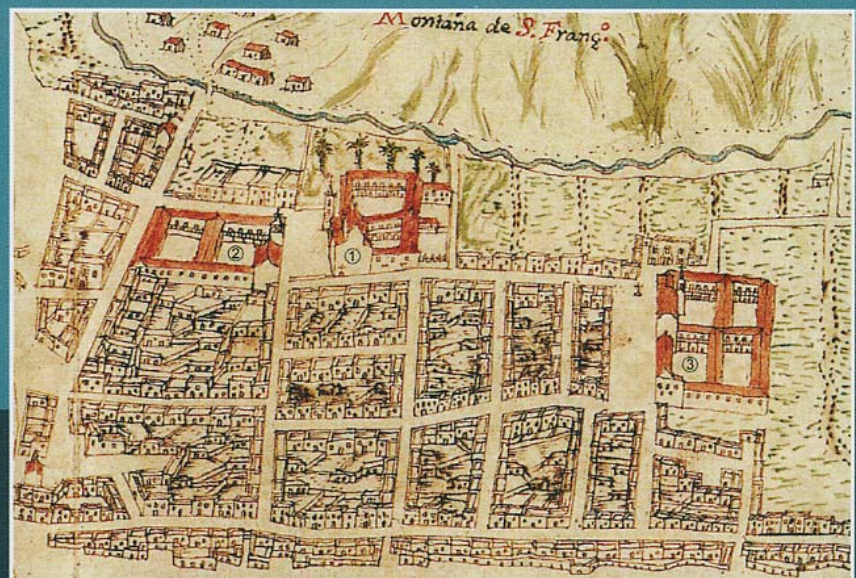 Montaña de S. Franç.º
②
①
③